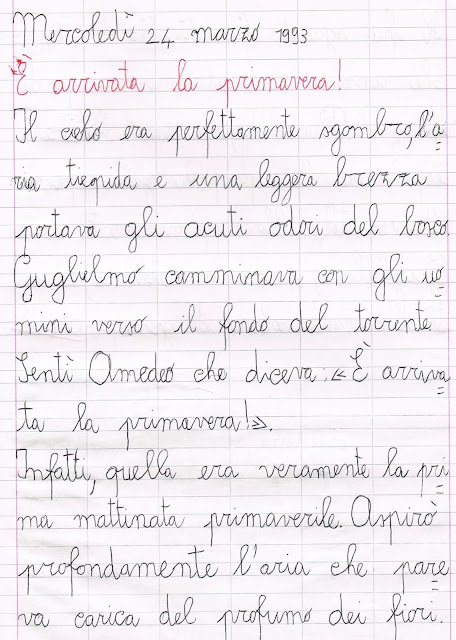 Mercoledì 24 marzo 1993
È arrivata la primavera!
Il cielo era perfettamente sgombro, l'a=
ria tiepida e una leggera brezza
portava gli acuti odori del bosco.
Guglielmo camminava con gli uo=
mini verso il fondo del torrente
Sentì Amedeo che diceva: «È arriva=
ta la primavera!».
Infatti, quella era veramente la pri=
ma mattinata primaverile. Aspirò
profondamente l'aria che pare=
va carica del profumo dei fiori.